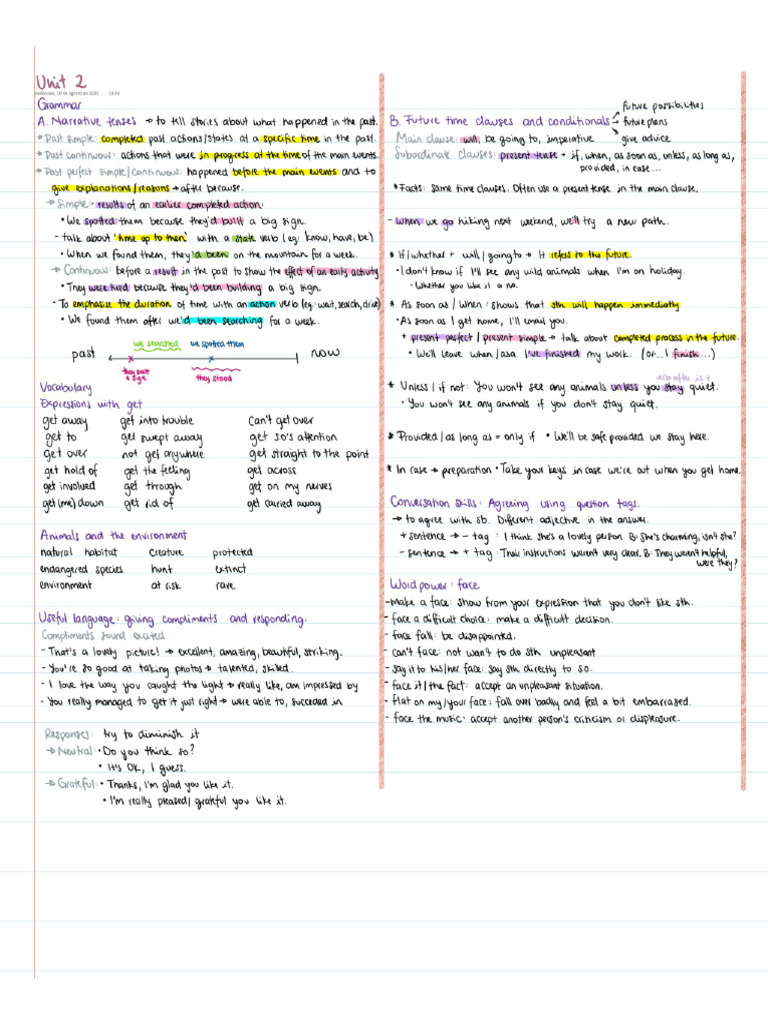 Unit 2
miércoles, 18 de agosto de 2021 19:43
Grammar
A. Narrative tenses → to tell stories about what happened in the past.
→ Past simple: completed past actions/states at a specific time in the past.
→ Past continuous: actions that were in progress at the time of the main events.
→ Past perfect simple/continuous: happened before the main events and to
give explanations/reasons → after because.
→ Simple → results of an earlier completed action.
• We spotted them because they'd built a big sign.
- talk about "time up to then" with a state verb (eg: know, have, be)
• When we found them, they'd been on the mountain for a week.
→ Continuous: before a result in the past to show the effect of an early activity
• They were hired because they'd been building a big sign.
- To emphasise the duration of time with an action verb (eg: wait, search, drive)
• We found them after we'd been searching for a week.
we searched we spotted them
past now
they built a sign they stood
Vocabulary
Expressions with get
get away get into trouble Can't get over
get to get swept away get so's attention
get over not get anywhere get straight to the point
get hold of get the feeling get across
get involved get through get on my nerves
get (me) down get rid of get carried away
Animals and the environment
natural habitat creature protected
endangered species hunt extinct
environment at risk rare
Useful language: giving compliments and responding.
Compliments sound excited
- That's a lovely picture! → excellent, amazing, beautiful, striking.
- You're so good at taking photos → talented, skilled.
- I love the way you caught the light → really like, am impressed by
- You really managed to get it just right → were able to, succeeded in
Responses: try to diminish it
→ Neutral: • Do you think so?
• It's OK, I guess.
→ Grateful: • Thanks, I'm glad you like it.
• I'm really pleased/ grateful you like it.
future possibilities
B. Future time clauses and conditionals → future plans
give advice
Main clause: will, be going to, imperative
Subordinate clauses: present tense • if, when, as soon as, unless, as long as,
provided, in case...
* Facts: same time clauses. Often use a present tense in the main clause.
- When we go hiking next weekend, we'll try a new path.
* If/whether + will/going to → It refers to the future.
• I don't know if I'll see any wild animals when I'm on holiday.
• Whether you like it or no.
* As soon as / When: shows that sth will happen immediately
• As soon as I get home, I'll email you.
+ present perfect / present simple → talk about completed process in the future.
• We'll leave when/asa I've finished my work. (or... I finish...)
* Unless / if not: You won't see any animals unless you stay quiet.
• You won't see any animals if you don't stay quiet.
* Provided / as long as = only if • We'll be safe provided we stay here.
* In case → preparation • Take your keys in case we're out when you get home.
Conversation skills: Agreeing using question tags.
→ to agree with sb. Different adjective in the answer.
+ sentence → - tag: I think she's a lovely person. B: She's charming, isn't she?
- sentence → + tag: Their instructions weren't very clear, B: They weren't helpful,
were they?
Word power: face
- Make a face: show from your expression that you don't like sth.
- face a difficult choice: make a difficult decision.
- face fall: be disappointed.
- can't face: not want to do sth unpleasant
- say it to his/her face: say sth directly to so.
- face it/the fact: accept an unpleasant situation.
- flat on my/your face: fall over badly and feel a bit embarrased.
- face the music: accept another person's criticism or displeasure.